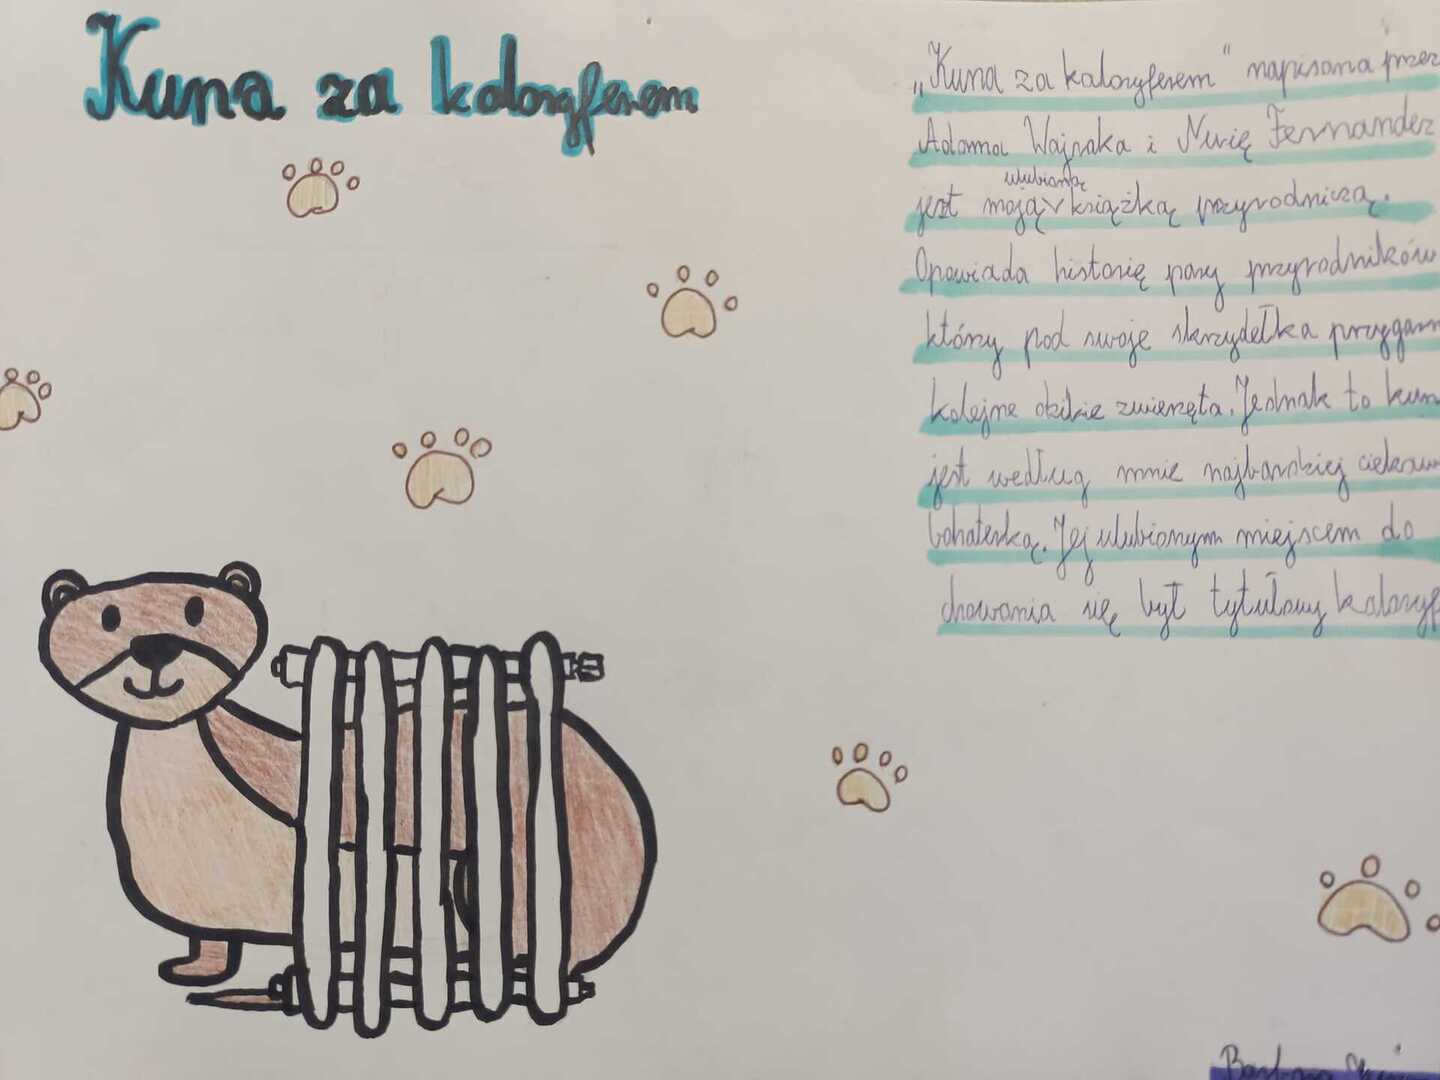 Kuna za kaloryferem
„Kuna za kaloryferem" napisana przez
Adama Wajraka i Nurię Fernandez
jest moją ulubioną książką przyrodniczą.
Opowiada historię pary przyrodników
którzy pod swoje skrzydełka przygarn
kolejne dzikie zwierzęta. Jednak to kun
jest według mnie najbardziej ciekaw
bohaterką. Jej ulubionym miejscem do
chowania się był tytułowy kaloryf
Barbara